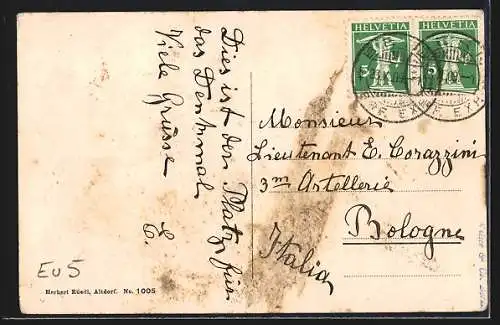 HELVETIA HELVETIA
5 5
Dies ist der Platz für
das Denkmal
Viele Grüsse
E.
Monsieur
Lieutenant E. Corazzini
3m Artellerie
Bologne
Italia
Eu5
Herbert Rüedi, Altdorf. No. 1005